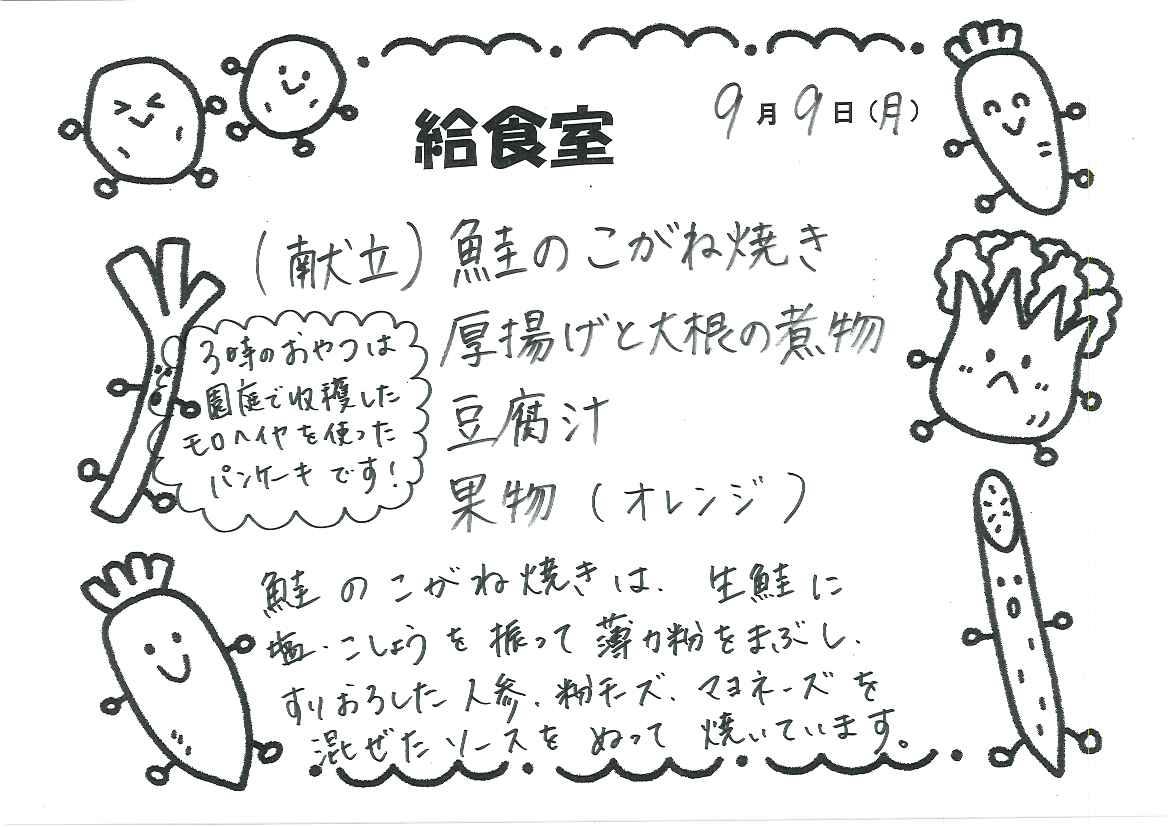 給食室
9月9日(月)
(献立)鮭のこがね焼き
厚揚げと大根の煮物
豆腐汁
果物(オレンジ)
3時のおやつは
園庭で収穫した
モロヘイヤを使った
パンケーキです!
鮭のこがね焼きは、生鮭に
塩・こしょうを振って薄力粉をまぶし、
すりおろした人参、粉チーズ、マヨネーズを
混ぜたソースをぬって焼いています。